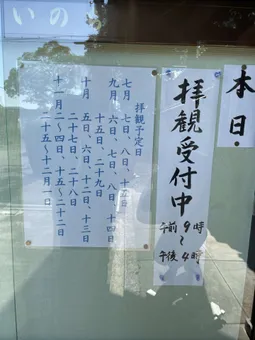 いの
本日
拝観受付中
午前9時
〜
午後4時
拝観予定日
七月 七日、八日、十五日
九月 六日、七日、八日、十四日
十五日、二十九日
十月 五日、六日、十二日、十三日
二十七日、二十八日
十一月二〜四日、十五〜二十二日
二十五〜十二月一日